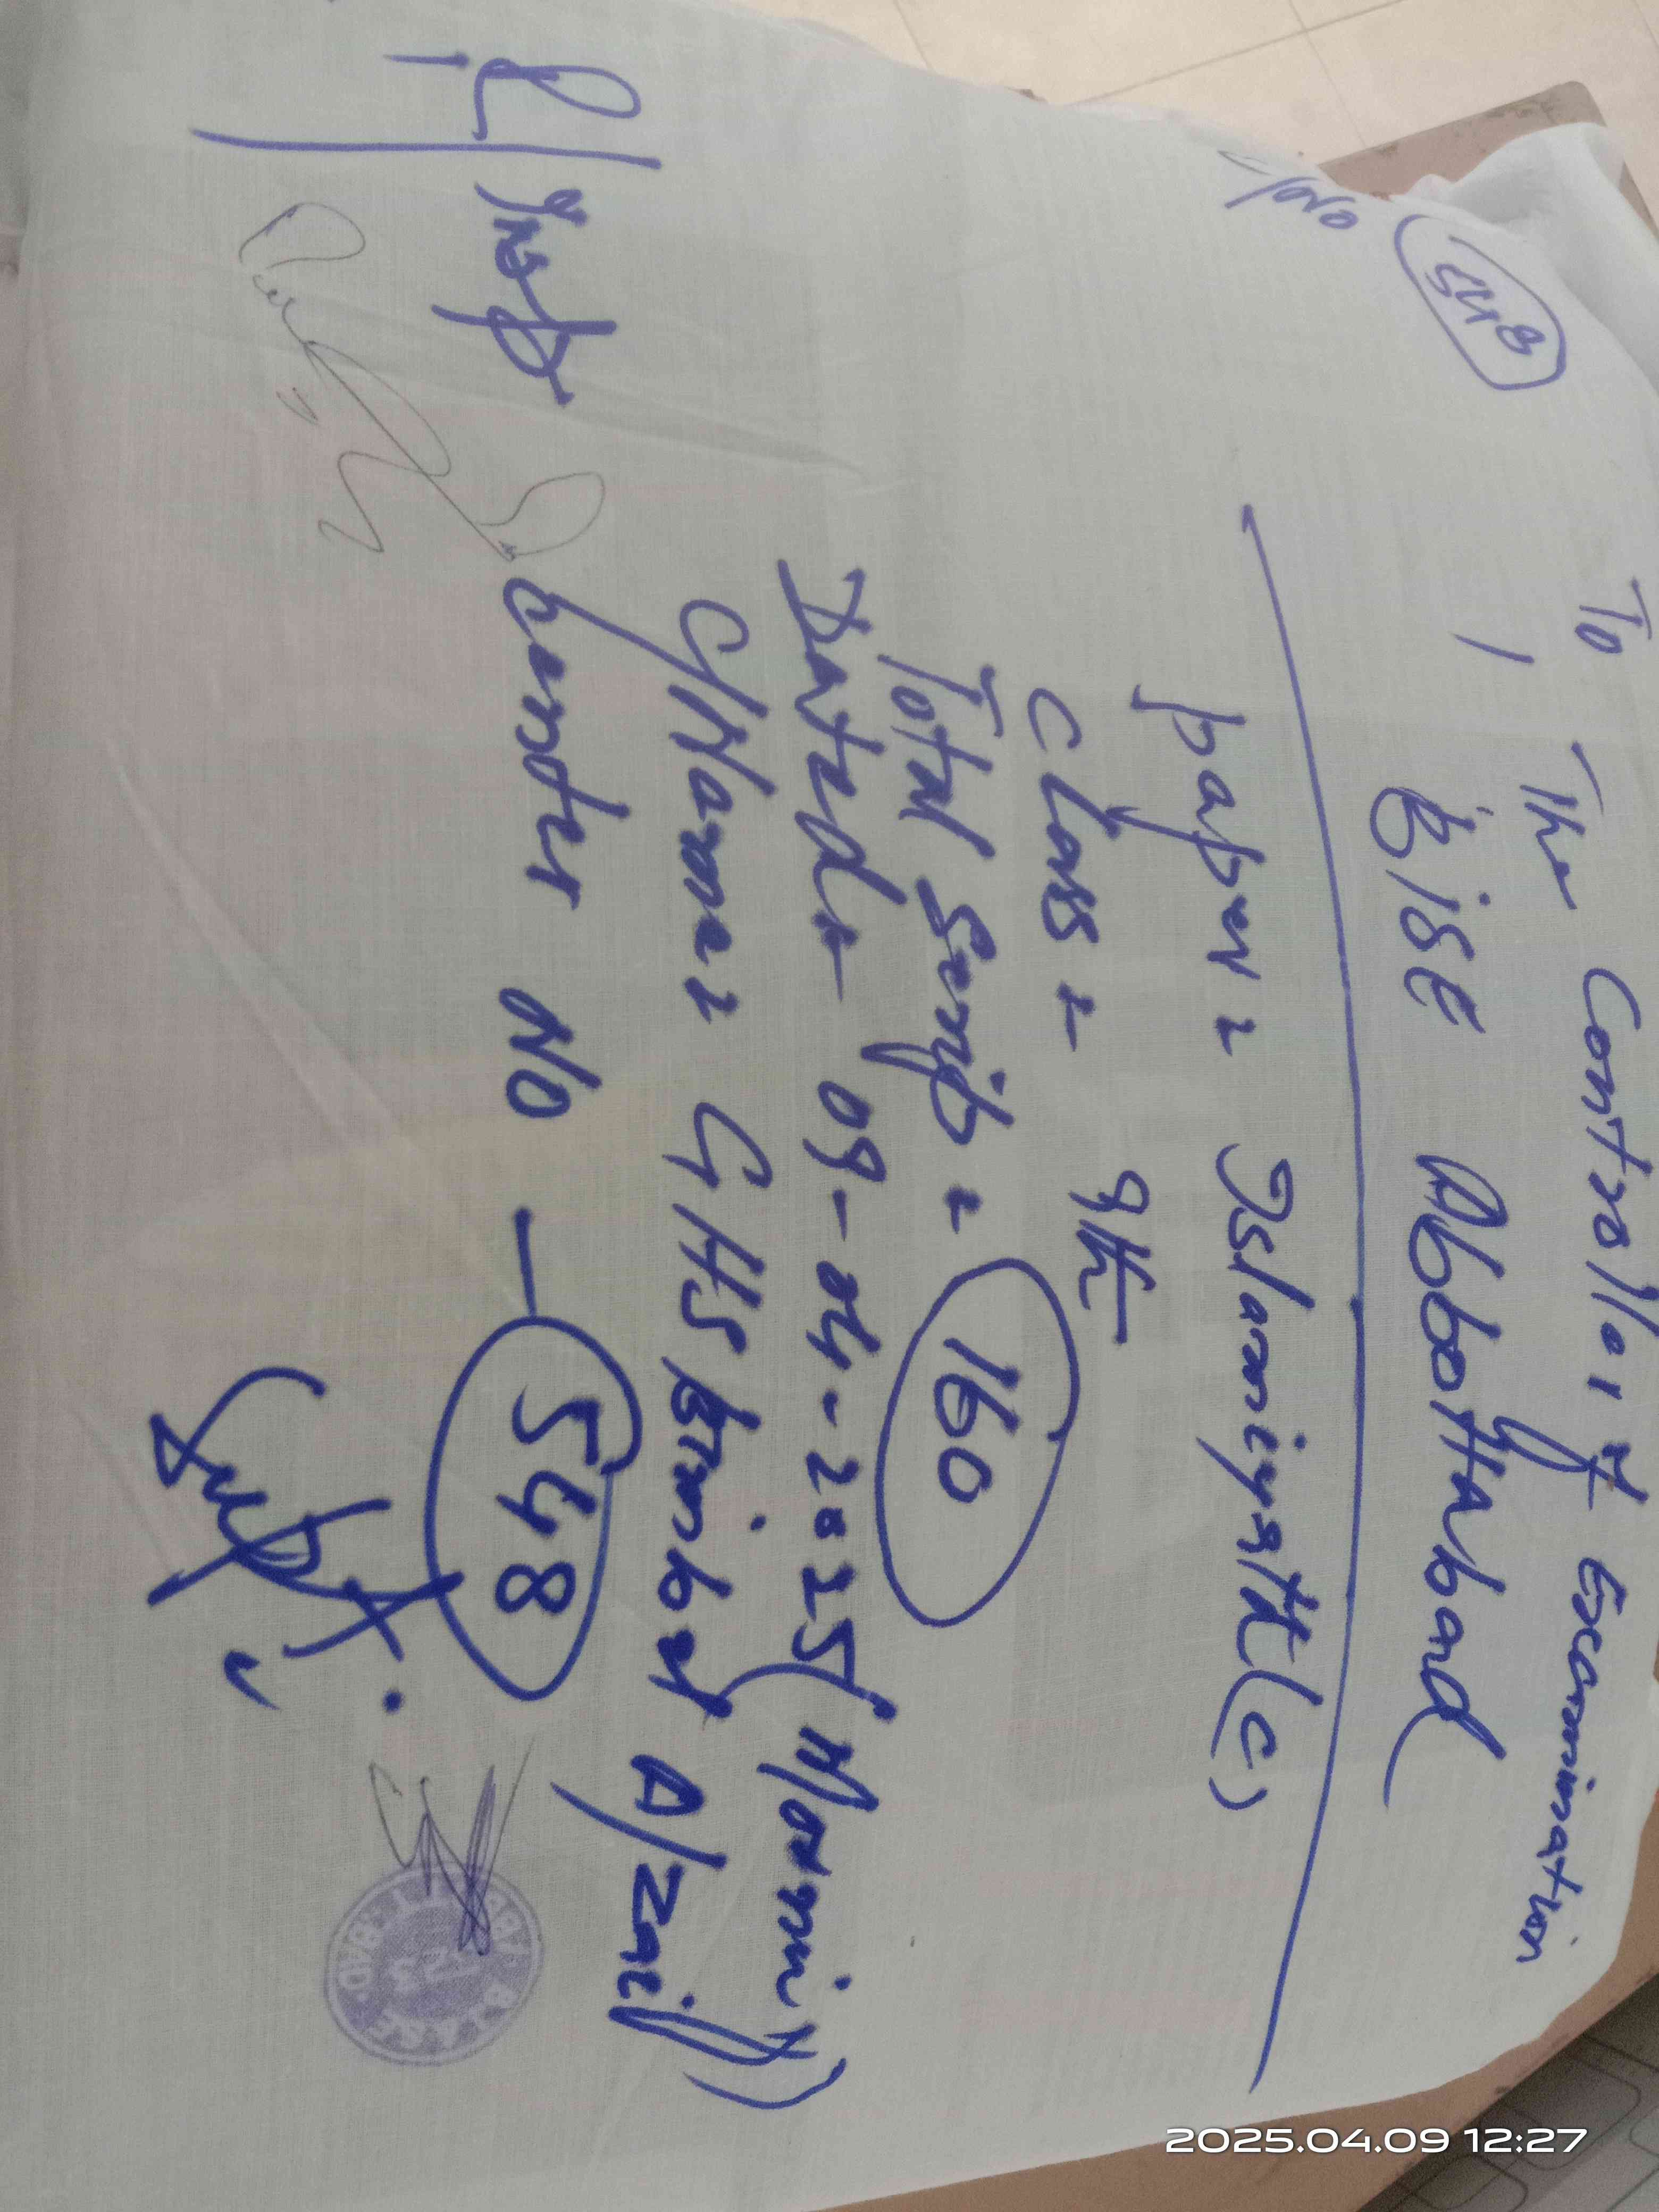 548
To The Controller of Examination
BISE Abbottabad
Paper = Islamiyat (C)
Class = 9th
Total Scrip = 160
Dated = 09-04-2025 (Morning)
C/Name = GHS
Center No — 548
R/Insp
2025.04.09 12:27